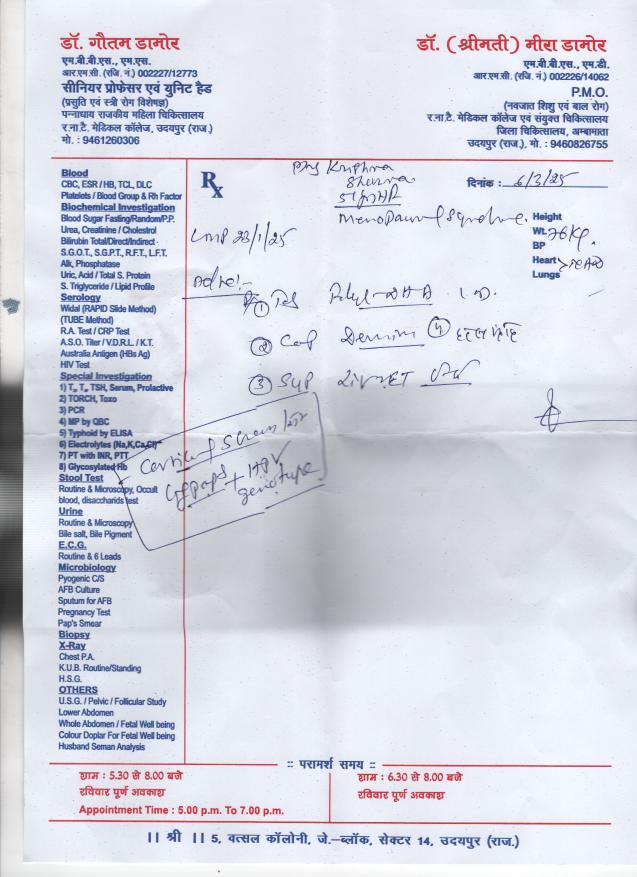 डॉ. गौतम डामोर
एम.बी.बी.एस., एम.एस.
आर.एम.सी. (रजि. नं.) 002227/12773
सीनियर प्रोफेसर एवं युनिट हैड
(प्रसुति एवं स्त्री रोग विशेषज्ञ)
पन्नाधाय राजकीय महिला चिकित्सालय
र.ना.टै. मेडिकल कॉलेज, उदयपुर (राज.)
मो. : 9461260306
डॉ. (श्रीमती) मीरा डामोर
एम.बी.बी.एस., एम.डी.
आर.एम.सी. (रजि. नं.) 002226/14062
P.M.O.
(नवजात शिशु एवं बाल रोग)
र.ना.टै. मेडिकल कॉलेज एवं संयुक्त चिकित्सालय
जिला चिकित्सालय, अम्बामाता
उदयपुर (राज.), मो. : 9460826755
Blood
CBC, ESR / HB, TCL, DLC
Platelets / Blood Group & Rh Factor
Biochemical Investigation
Blood Sugar Fasting/Random/P.P.
Urea, Creatinine / Cholestrol
Bilirubin Total/Direct/Indirect
S.G.O.T., S.G.P.T., R.F.T., L.F.T.
Alk, Phosphatase
Uric, Acid / Total S. Protein
S. Triglyceride / Lipid Profile
Serology
Widal (RAPID Slide Method)
(TUBE Method)
R.A. Test / CRP Test
A.S.O. Titer / V.D.R.L. / K.T.
Australia Antigen (HBs Ag)
HIV Test
Special Investigation
1) T3, T4, TSH, Serum, Prolactive
2) TORCH, Toxo
3) PCR
4) MP by QBC
5) Typhoid by ELISA
6) Electrolytes (Na,K,Ca,Cl)
7) PT with INR, PTT
8) Glycosylated Hb
Stool Test
Routine & Microscopy, Occult
blood, disaccharids test
Urine
Routine & Microscopy
Bile salt, Bile Pigment
E.C.G.
Routine & 6 Leads
Microbiology
Pyogenic C/S
AFB Culture
Sputum for AFB
Pregnancy Test
Pap's Smear
Biopsy
X-Ray
Chest P.A.
K.U.B. Routine/Standing
H.S.G.
OTHERS
U.S.G. / Pelvic / Follicular Study
Lower Abdomen
Whole Abdomen / Fetal Well being
Colour Doplar For Fetal Well being
Husband Seman Analysis
Rx
Krishna
Sharma
दिनांक : 6/3/25
Height
Wt. 76 Kg.
BP
Heart
Lungs
LMP 23/1/25
Adve:-
①
② Cap
③ Syp
+ HPV
genotype
:: परामर्श समय ::
शाम : 5.30 से 8.00 बजे
रविवार पूर्ण अवकाश
Appointment Time : 5.00 p.m. To 7.00 p.m.
शाम : 6.30 से 8.00 बजे
रविवार पूर्ण अवकाश
।। श्री ।। 5, वत्सल कॉलोनी, जे.–ब्लॉक, सेक्टर 14, उदयपुर (राज.)